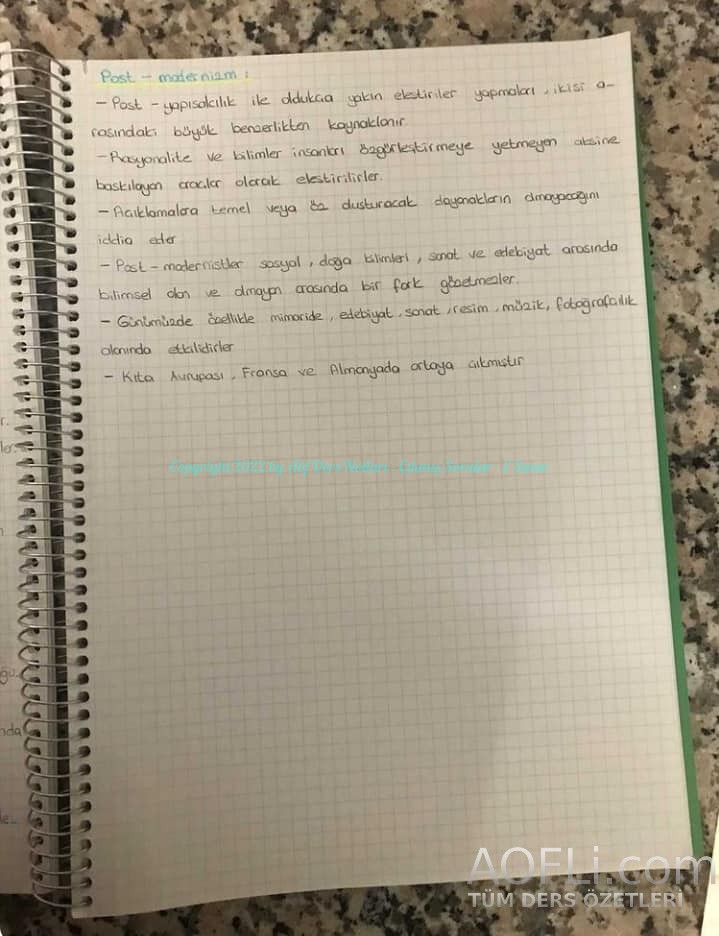 Post - modernizm :
- Post - yapısalcılık ile oldukça yakın eleştiriler yapmaları, ikisi a-
rasındaki büyük benzerlikten kaynaklanır
- Rasyonalite ve bilimler insanları özgürleştirmeye yetmeyen aksine
baskılayan araçlar olarak eleştirilirler.
- Açıklamalara temel veya öz oluşturacak dayanakların olmayacağını
iddia eder
- Post - modernistler sosyal, doğa bilimleri, sanat ve edebiyat arasında
bilimsel olan ve olmayan arasında bir fark gözetmezler.
- Günümüzde özellikle mimaride, edebiyat, sanat, resim, müzik, fotoğrafçılık
alanında etkilidirler
- Kıta Avrupası, Fransa ve Almanyada ortaya çıkmıştır
Copyright by Ders Notları
AOFLi.com
TÜM DERS ÖZETLERİ